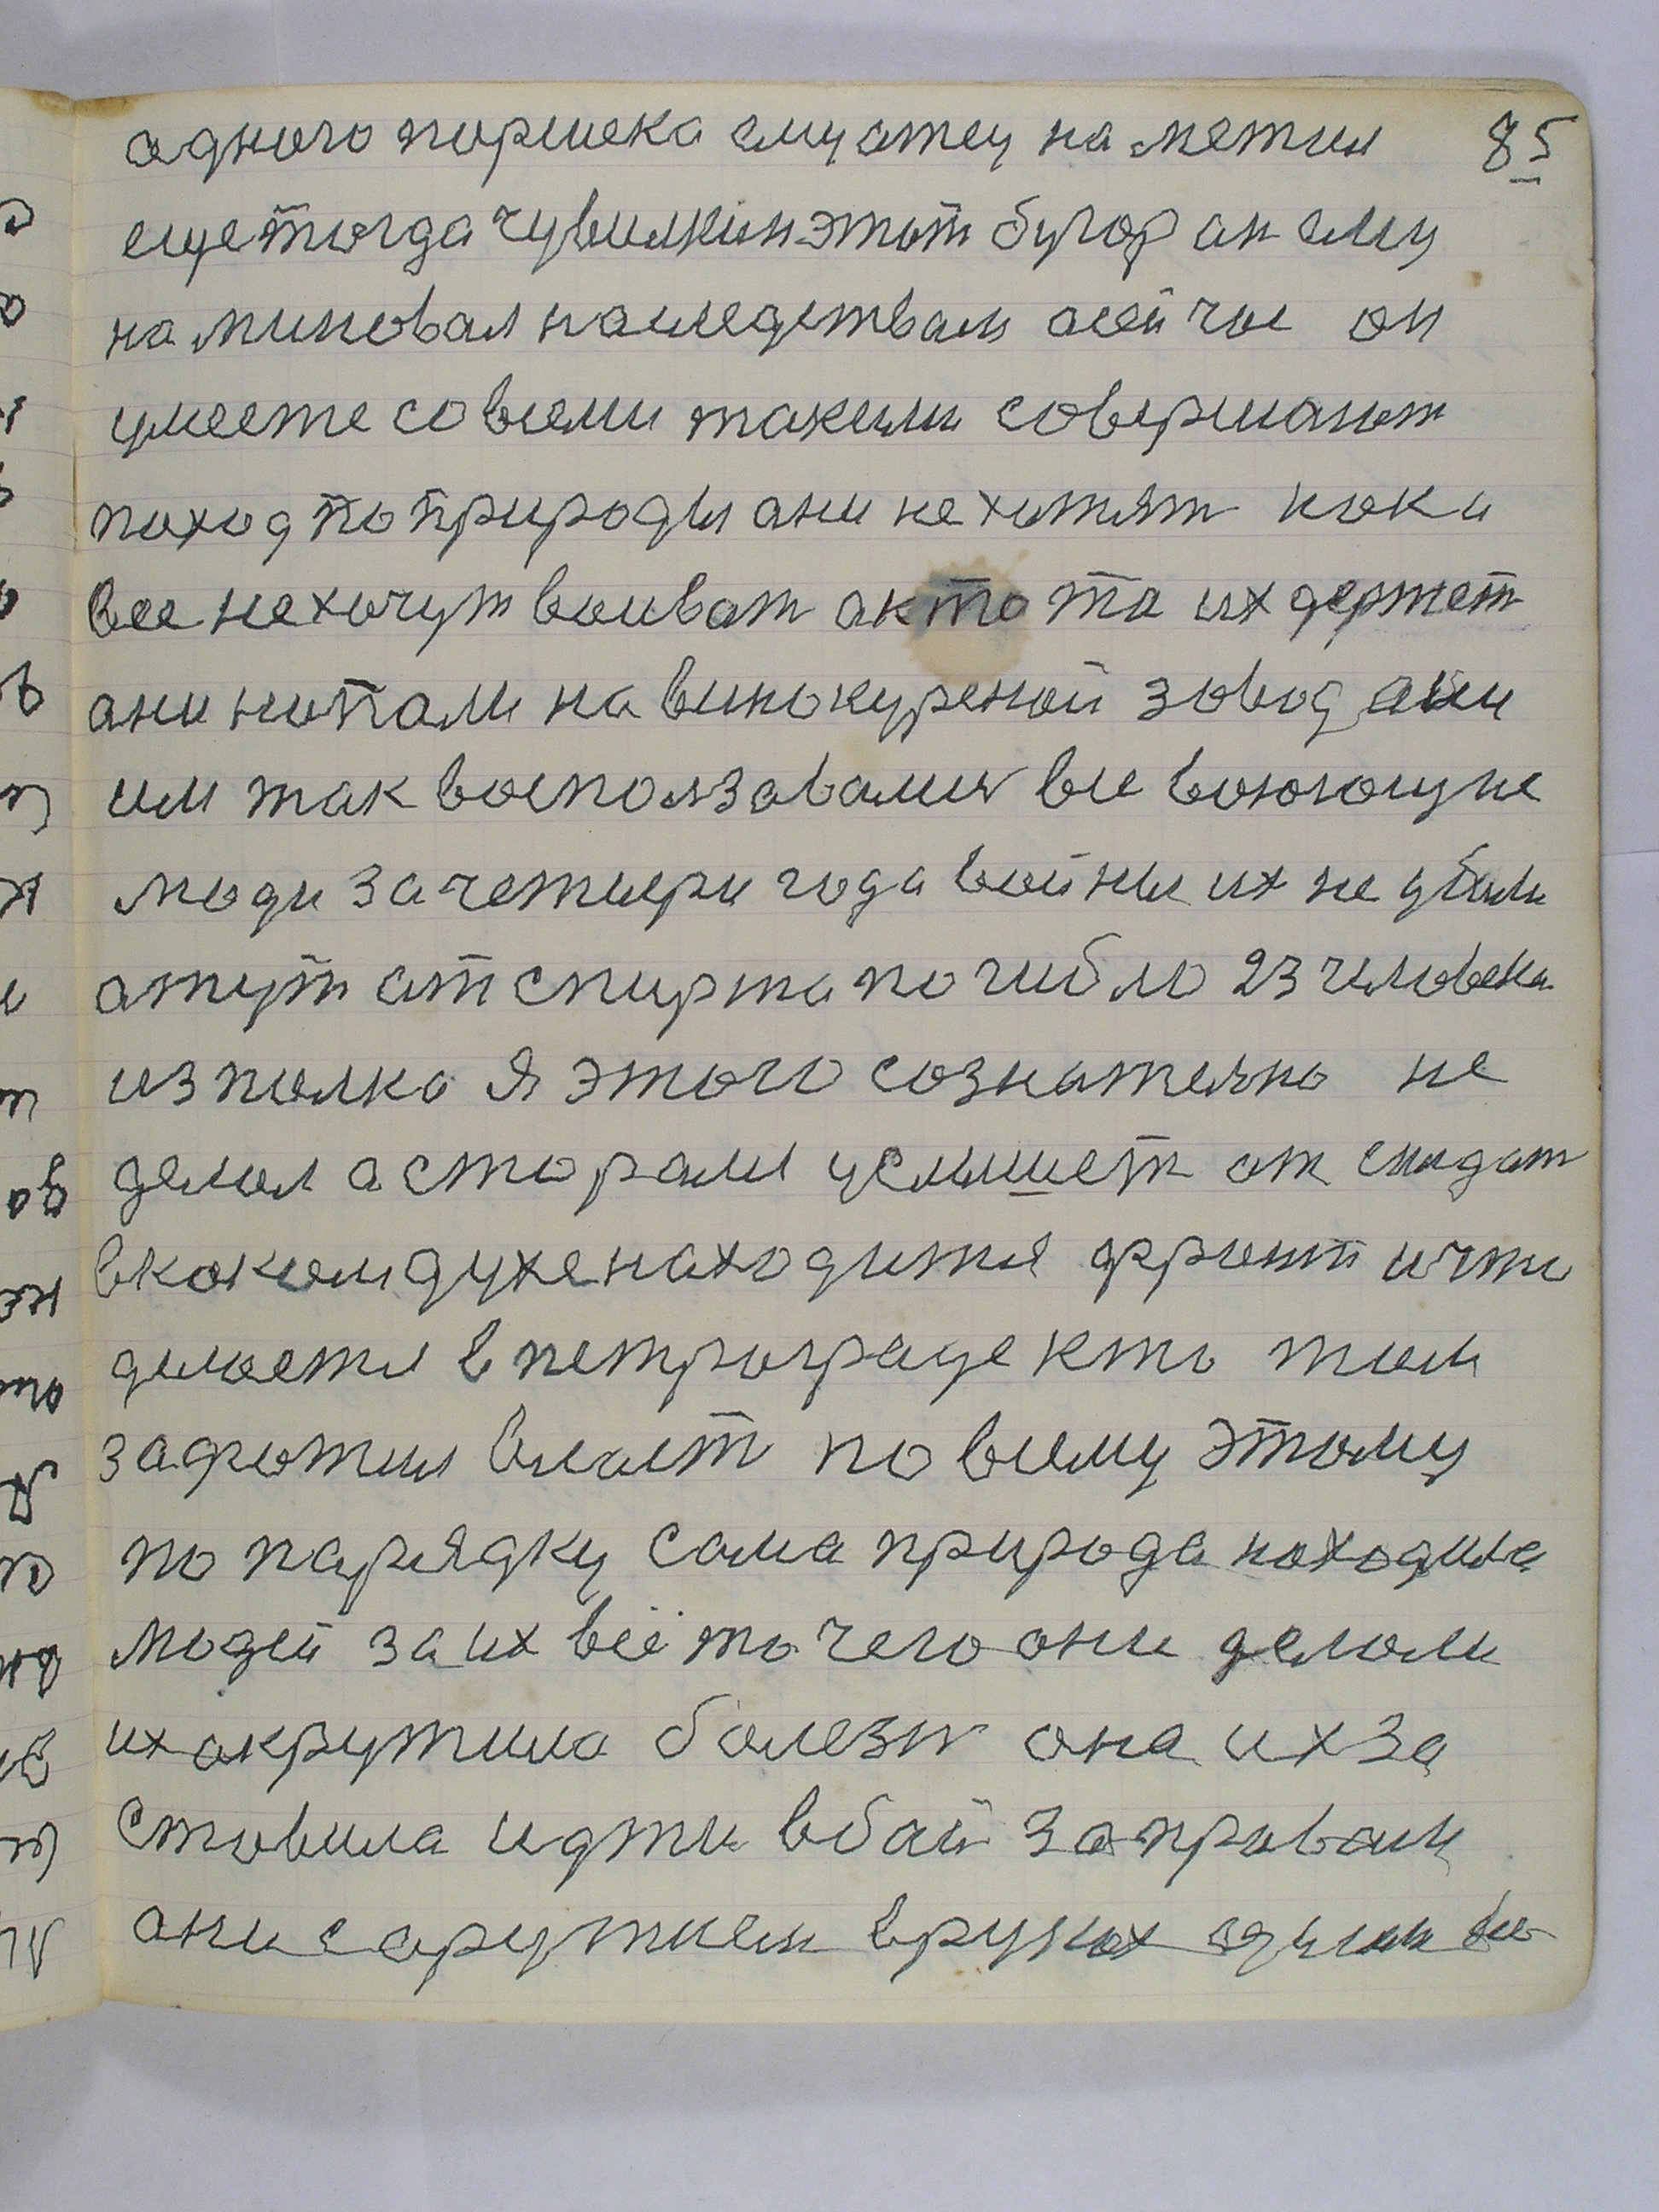 85
адного поршека ему отец на метил
еще тогда чувилкин этот бугор ан ему
на миновал наследствам асейчас он
умеете совсеми такими совершают
поход по природы ани не хотят пока
все не хочут воиват а кто та их держет
ани нопали на винокуреной завод ани
им так воспользавались все воюющие
люди за четыри года войны их не убили
а тут от спирта погибло 23 человека
из полка я этого сознательно не
делал а старался услышеть от солдат
в каком духе находится фронт и что
делается в петрограде кто там
захватил власт по всему этому
по парядку сама природа находила
людей за их всё то чего они делали
их акрутила болезн она их за
ставила идти в бой за права и
ани с аружием в руках адним